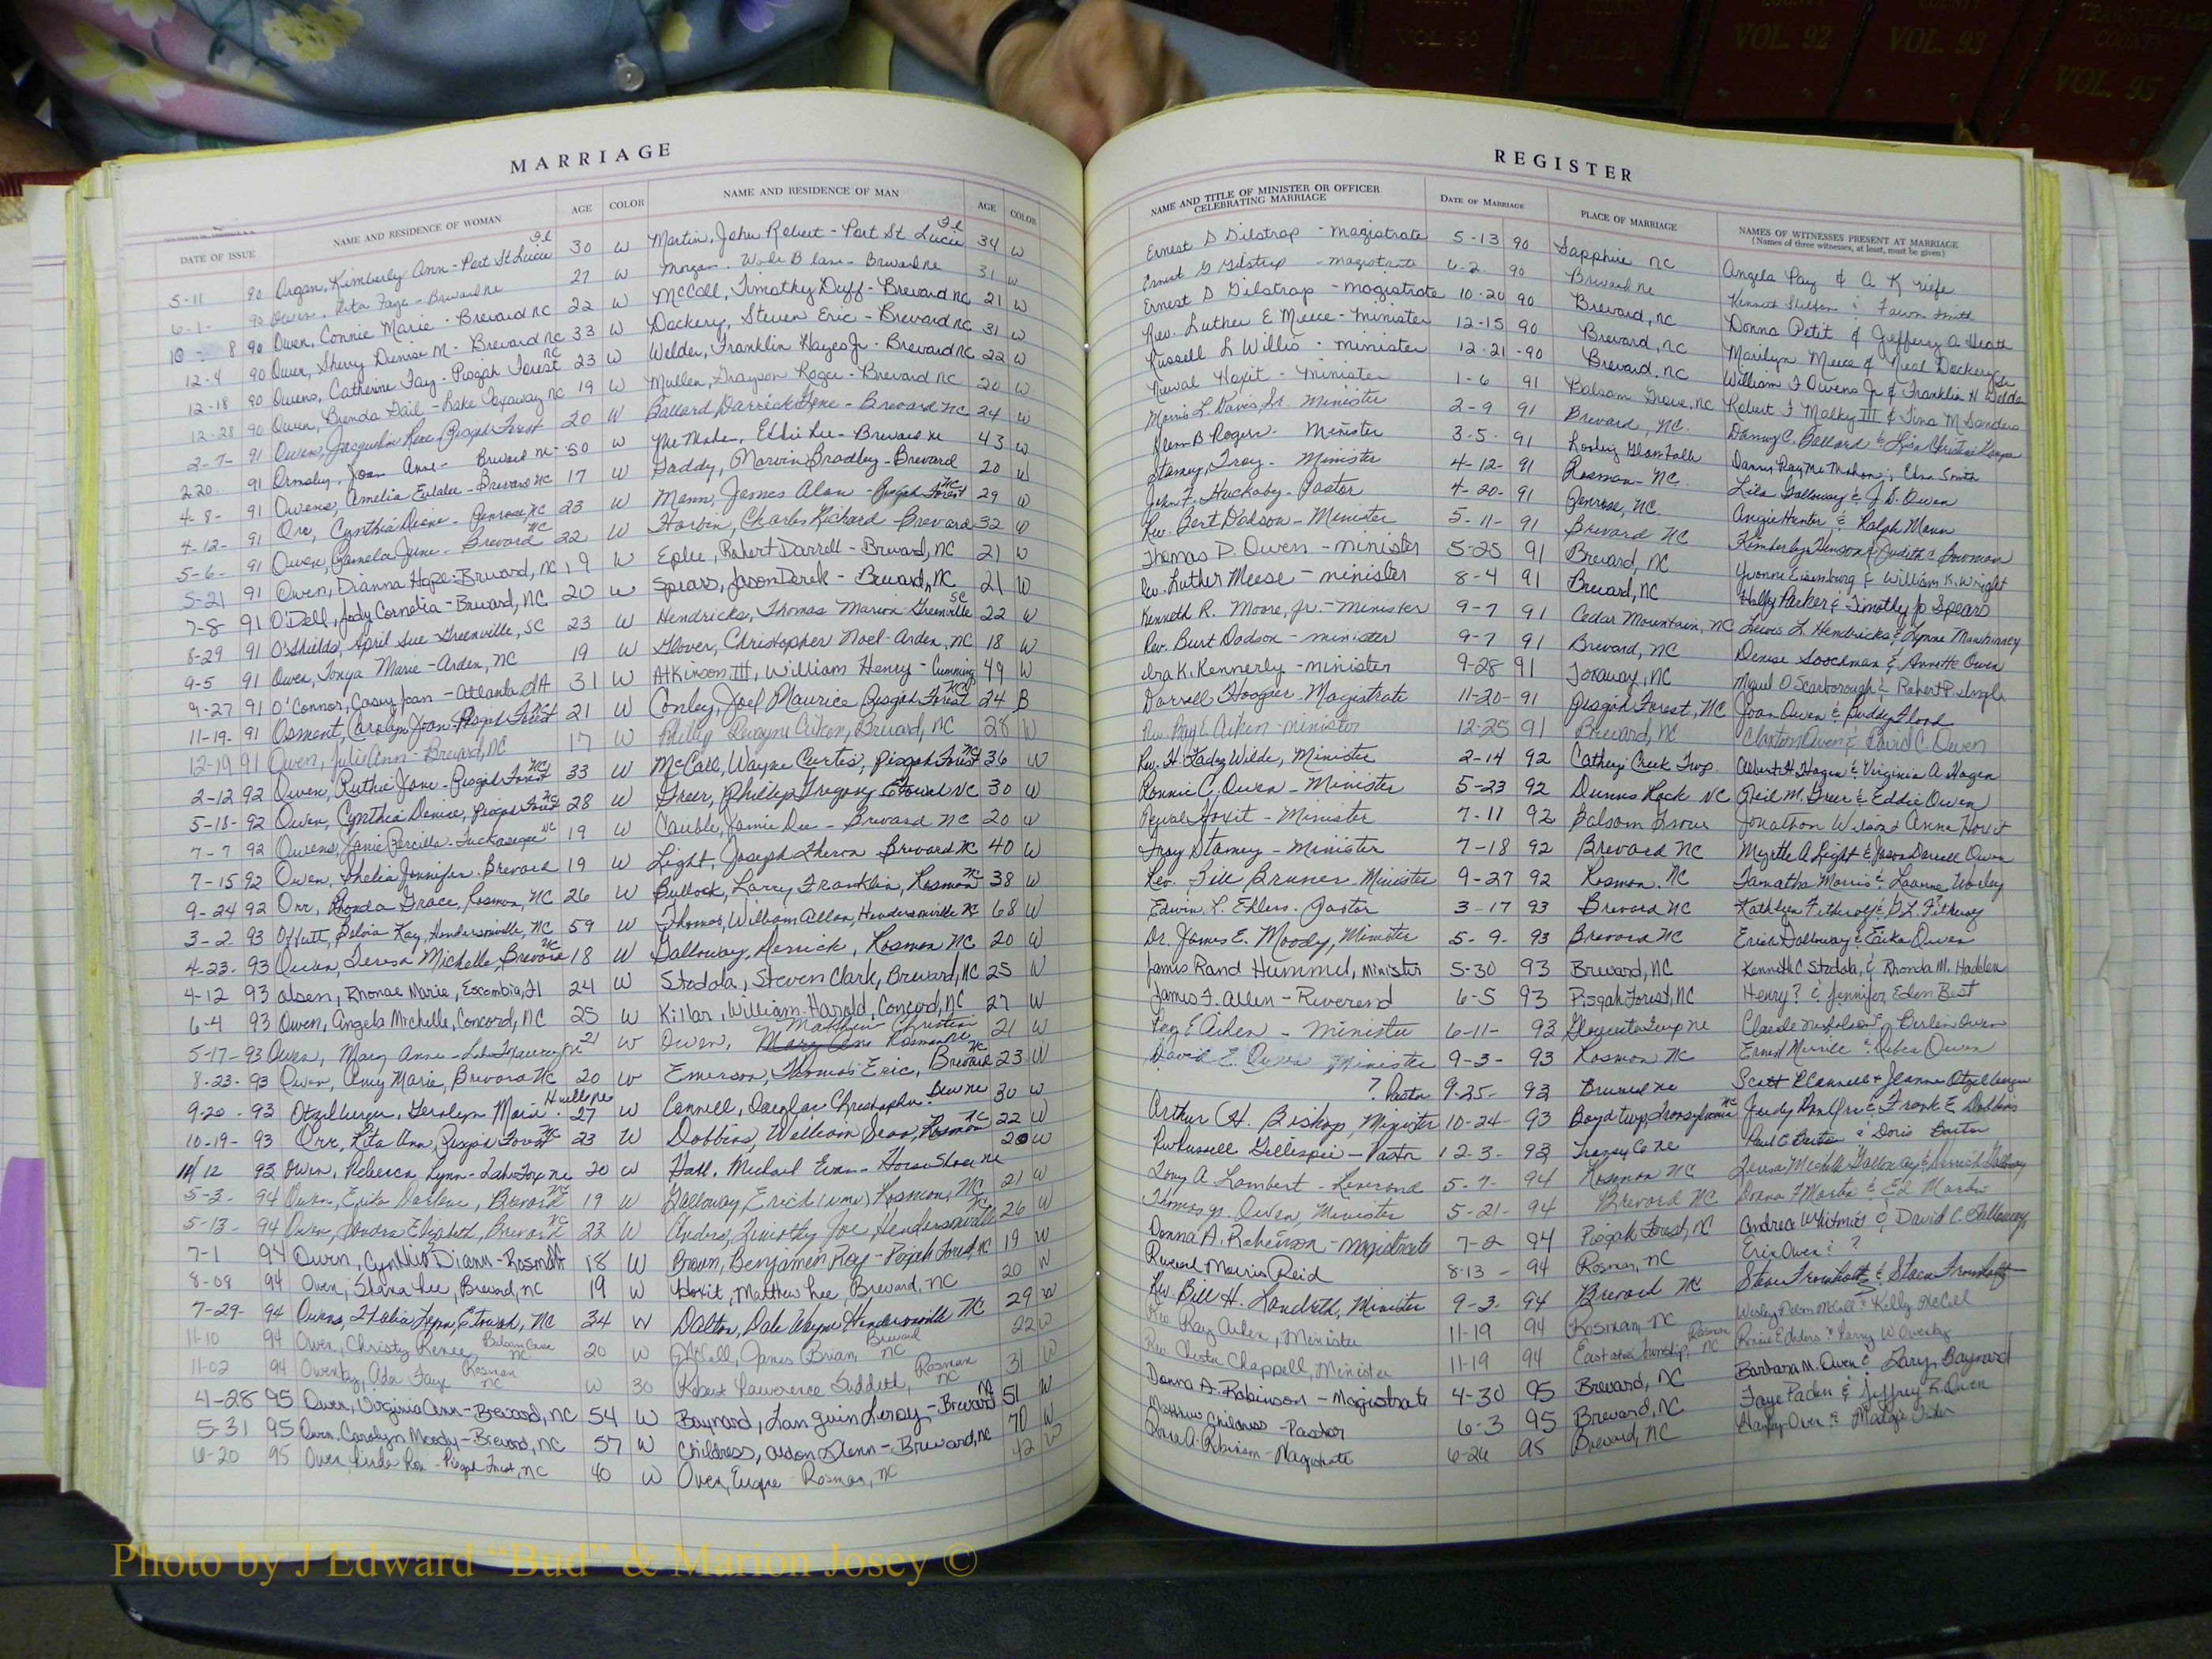 VOL. 90
VOL. 91
COUNTY
VOL. 92
COUNTY
VOL. 93
TRANSYLVANIA
COUNTY
VOL. 95
MARRIAGE
DATE OF ISSUE NAME AND RESIDENCE OF WOMAN AGE COLOR NAME AND RESIDENCE OF MAN AGE COLOR
5-11 90 Kimberly Ann - Port St Lucie Fl 30 W Martin, John Robert - Port St Lucie Fl 34 W
6-1- 90 Owen, Rita Faye - Brevard NC 27 W Morgan, Wade - Brevard NC 31 W
10 - 8 90 Owen, Connie Marie - Brevard NC 22 W McCall, Timothy Duff - Brevard NC 21 W
12-4 90 Owen, Sherry Denise M - Brevard NC 33 W Dockery, Steven Eric - Brevard NC 31 W
12-18 90 Owens, Catherine Fay - Pisgah Forest NC 23 W Welder, Franklin Hayes Jr - Brevard NC 22 W
12-28 90 Owen, Brenda Gail - Lake Toxaway NC 19 W Mullen, Grayson Roger - Brevard NC 20 W
2-7- 91 Owen, Jacqueline Rene, Pisgah Forest 20 W Ballard, Darrick Gene - Brevard NC 24 W
2-20- 91 Ormsby, Joan Anne - Brevard NC - 50 W McMahan, Eddie Lee - Brevard NC 43 W
4-8- 91 Owens, Amelia Eulalee - Brevard NC 17 W Gaddy, Marvin Bradley - Brevard 20 W
4-12- 91 Orr, Cynthia Diane - Penrose, NC 23 W Mann, James Alan - Pisgah Forest NC 29 W
5-6- 91 Owen, Pamela June - Brevard NC 22 W Harbin, Charles Richard - Brevard 32 W
5-21 91 Owen, Dianna Hope - Brevard, NC 19 W Eplee, Robert Darrell - Brevard, NC 21 W
7-8 91 O'Dell, Jody Cornelia - Brevard, NC 20 W Spears, Jason Derek - Brevard, NC 21 W
8-29 91 O'Shields, April Sue - Greenville, SC 23 W Hendricks, Thomas Marion - Greenville SC 22 W
9-5 91 Owen, Tonya Marie - Arden, NC 19 W Glover, Christopher Noel - Arden, NC 18 W
9-27 91 O'Connor, Casey Joan - Atlanta, GA 31 W Atkinson III, William Henry - Cumming 49 W
11-19- 91 Osment, Carolyn Joan - Pisgah Forest NC 21 W Conley, Joel Maurice Pisgah Forest NC 24 B
12-19 91 Owen, Julie Ann - Brevard, NC 17 W Phillip Dwayne Aiken, Brevard, NC 28 W
2-12 92 Owen, Ruthie Jane - Pisgah Forest NC 33 W McCall, Wayne Curtis, Pisgah Forest NC 36 W
5-18- 92 Owen, Cynthia Denise, Pisgah Forest NC 28 W Greer, Phillip Gregory Etowah NC 30 W
7-7 92 Owens, Janie Percilla - Tuckasegee NC 19 W Cauble, Jamie Dee - Brevard NC 20 W
7-15 92 Owen, Shelia Jennifer - Brevard 19 W Light, Joseph Theron Brevard NC 40 W
9-24 92 Orr, Rhonda Grace, Rosman, NC 26 W Bullock, Larry Franklin, Rosman NC 38 W
3-2- 93 Offutt, Belvia Kay, Hendersonville, NC 59 W Thomas, William Allan, Hendersonville NC 68 W
4-23- 93 Owen, Teresa Michelle, Brevard NC 18 W Galloway, Derrick, Rosman NC 20 W
4-12 93 Olsen, Rhonae Marie, Escambia, Fl 24 W Stodola, Steven Clark, Brevard, NC 25 W
6-4 93 Owen, Angela Michelle, Concord, NC 25 W Killar, William Harold, Concord, NC 27 W
5-17-93 Owen, Mary Anne - Lake Toxaway NC 21 W Owen, Matthew Christian Rosman NC 21 W
8-23- 93 Owen, Amy Marie, Brevard NC 20 W Emerson, Thomas Eric, Brevard NC 23 W
9-20- 93 Otzelberger, Geralyn Marie - 27 W Connell, Douglas Christopher 30 W
10-19- 93 Orr, Rita Ann, Pisgah Forest NC 23 W Dobbins, William Sean, Rosman NC 22 W
11/12 93 Owen, Rebecca Lynn - Lake Tox NC 20 W Hall, Michael Evan - Horse Shoe NC 20 W
5-3- 94 Owen, Erika Darlene, Brevard NC 19 W Galloway, Erich (NMN) Rosman, NC 21 W
5-13- 94 Owen, Sandra Elizabeth, Brevard NC 22 W Anders, Timothy Joe, Hendersonville NC 26 W
7-1 94 Owen, Cynthia Diann - Rosman 18 W Brown, Benjamin Ray - Pisgah Forest, NC 19 W
8-08 94 Owen, Shana Lee, Brevard, NC 19 W Hoxit, Matthew Lee Brevard, NC 20 W
7-29- 94 Owens, Thalia Lynn, Etowah, NC 34 W Dalton, Dale Wayne Hendersonville NC 29 W
11-10 94 Owen, Christy Renee Balsam Grove NC 20 W McCall, James Brian, Brevard NC 22 W
11-02 94 Owenby, Ada Faye Rosman NC W 30 Robert Lawrence Suddeth, Rosman NC 31 W
4-28 95 Owen, Virginia Ann - Brevard, NC 54 W Baynard, Leroy - Brevard NC 51 W
5-31 95 Owen, Carolyn Moody - Brevard, NC 57 W Childress, Glenn - Brevard, NC 70 W
6-20 95 Owen, Linda - Pisgah Forest, NC 40 W Owen, Eugene Rosman, NC 42 W
REGISTER
NAME AND TITLE OF MINISTER OR OFFICER CELEBRATING MARRIAGE DATE OF MARRIAGE PLACE OF MARRIAGE NAMES OF WITNESSES PRESENT AT MARRIAGE
(Names of three witnesses, at least, must be given)
Ernest D Gilstrap - magistrate 5-13 90 Sapphire NC Angela Pay & A K
Ernest D Gilstrap - magistrate 6-2 90 Brevard NC Kenneth Shelton & Fawn Smith
Ernest D Gilstrap - magistrate 10-20 90 Brevard, NC Donna Petit & Jeffery A Heath
Rev. Luther E Meece - minister 12-15 90 Brevard, NC Marilyn Meece & Neal Dockery Sr
Russell L Willis - minister 12-21-90 Brevard, NC William F Owens Jr & Franklin H
Hoxit - minister 1-6 91 Balsam Grove, NC Robert F Malky III & Tina M Sanders
Morris L Davis Sr. Minister 2-9 91 Brevard, NC. Danny C. Ballard & Lisa Christine
Glenn B Rogers - Minister 3-5- 91 Danny Ray McMahan & Smith
Stamey, Troy - Minister 4-12- 91 Rosman - NC Lila Galloway & J.D. Owen
John F. Huckaby - Pastor 4-20- 91 Penrose, NC. Angie Hunter & Ralph Mann
Rev. Bert Dodson - Minister 5-11- 91 Brevard NC Kimberly Henson & Judith C Bowman
Thomas D. Owen - minister 5-25 91 Brevard, NC Yvonne Eisenburg & William K. Wright
Rev. Luther Meese - minister 8-4 91 Brevard, NC Holly Parker & Timothy Jo Spears
Kenneth R. Moore, Jr. - Minister 9-7 91 Cedar Mountain, NC Lewis L Hendricks & Lynne
Rev. Burt Dodson - minister 9-7 91 Brevard, NC Denise & Annette Owen
Ira K. Kennerly - minister 9-28 91 Toxaway, NC Miguel O Scarborough & Robert P.
Darrell Hoosier - Magistrate 11-20- 91 Pisgah Forest, NC Joan Owen & Buddy Flood
Rev. Ray E. Aiken - minister 12-25 91 Brevard, NC Claxton Owen & David C. Owen
Rev. H. Wilde, Minister 2-14 92 Catheys Creek Twp. Albert H. Hogen & Virginia A. Hagen
Ronnie C. Owen - Minister 5-23 92 Dunns Rock NC Neil M. Greer & Eddie Owen
Hoxit - Minister 7-11 92 Balsam Grove Jonathan Wilson & Anna Hoxit
Troy Stamey - Minister 7-18 92 Brevard NC Myrtle A Light & Jason Darrell Owen
Rev. Bill Bruner - Minister 9-27 92 Rosman, NC Tamatha Morris & Leanne Worley
Edwin L. Ehlers - Pastor 3-17 93 Brevard NC Kathleen
Dr. James E. Moody, Minister 5-9- 93 Brevard NC Erich Galloway & Erika Owen
James Rand Hummel, Minister 5-30 93 Brevard, NC Kenneth C. Stodola, & Rhonda M. Hadden
James F. Allen - Reverend 6-5 93 Pisgah Forest, NC Henry? & Jennifer Eden Best
Ray E Aiken - Minister 6-11- 93 Gloucester Twp NC Claude Nicholson & Berlin Owen
David E. Owen Minister 9-3- 93 Rosman NC Ernest & Debra Owen
? Pastor 9-25- 93 Brevard NC Scott P Connell & Jeanne Otzelberger
Arthur H. Bishop, Minister 10-24- 93 Boyd twp, Transylvania NC Judy Ann Orr & Frank E Dobbins
Rev Russell Gillespie - Pastor 12-3- 93 NC Paul C & Doris
Tony A. Lambert - Reverend 5-7- 94 Rosman NC Teresa Michelle Galloway & Derrick Galloway
Thomas D. Owen, Minister 5-21- 94 Brevard NC Donna F Martin & Ed Martin
Donna A. Robinson - Magistrate 7-2 94 Pisgah Forest, NC Andrea Whitmire & David C. Galloway
Morris Reid 8-13 - 94 Rosman, NC Erin Owen & ?
Rev. Bill H. Landreth, Minister 9-3- 94 Brevard NC Steve & Stacie
Rev Ray Aiken, Minister 11-19 94 Rosman, NC Wesley McCall & Kelly McCall
Rev. Chester Chappell, Minister 11-19 94 Eastatoe Township, Rosman NC & Larry W Owenby
Donna A. Robinson - Magistrate 4-30 95 Brevard, NC Barbara M. Owen & Larry Baynard
Matthew Childress - Pastor 6-3 95 Brevard, NC Faye Paden & Jeffrey R. Owen
Donna A. Robinson - Magistrate 6-26 95 Brevard, NC Owen &
Photo by J Edward “Bud” & Marion Josey ©